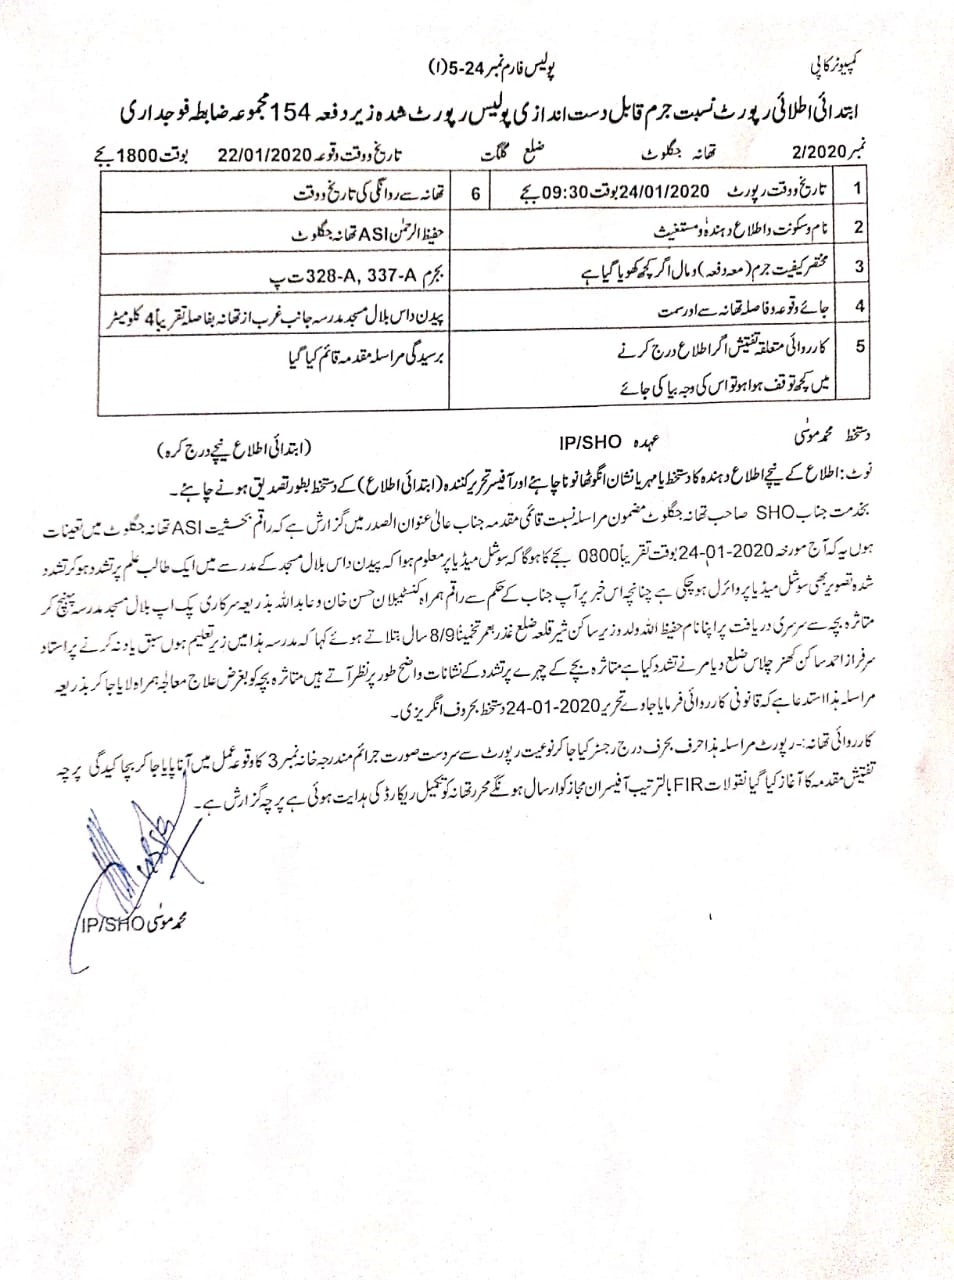 کمپیوٹر کاپی
پولیس فارم نمبر 24-5(۱)
ابتدائی اطلائی رپورٹ نسبت جرم قابل دست اندازی پولیس رپورٹ شدہ زیر دفعہ 154 مجموعہ ضابطہ فوجداری
نمبر 2/2020 تھانہ جگلوٹ ضلع گلگت تاریخ ووقت وقوعہ 22/01/2020 بوقت 1800 بجے
1 تاریخ ووقت رپورٹ 24/01/2020 بوقت 09:30 بجے 6 تھانہ سے روانگی کی تاریخ ووقت
2 نام وسکونت واطلاع دہندہ ومستغیث حفیظ الرحمٰن ASI تھانہ جگلوٹ
3 مختصر کیفیت جرم (معہ دفعہ) ومال اگر کچھ کھویا گیا ہے بجرم 328-A, 337-A ت پ
4 جائے وقوعہ وفاصلہ تھانہ سے اورسمت پیدن داس بلال مسجد مدرسہ جانب غرب از تھانہ بفاصلہ تقریباً 4 کلومیٹر
5 کارروائی متعلقہ تفتیش اگر اطلاع درج کرنے برسیدگی مراسلہ مقدمہ قائم کیا گیا
میں کچھ توقف ہوا ہو تو اس کی وجہ بیا کی جائے
دستخط محمد موسیٰ عہدہ IP/SHO (ابتدائی اطلاع نیچے درج کرہ)
نوٹ: اطلاع کے نیچے اطلاع دہندہ کا دستخط یا مہر یا نشان انگوٹھا نونا چاہئے اور آفیسر تحریر کنندہ (ابتدائی اطلاع) کے دستخط بطور تصدیق ہونے چاہئے۔
بخدمت جناب SHO صاحب تھانہ جگلوٹ مضمون مراسلہ نسبت قائمی مقدمہ جناب عالیٰ عنوان الصدر میں گزارش ہے کہ راقم بحیثیت ASI تھانہ جگلوٹ میں تعینات
ہوں یہ کہ آج مورخہ 24-01-2020 بوقت تقریباً 0800 بجے کا ہوگا کہ سوشل میڈیا پر معلوم ہوا کہ پیدن داس بلال مسجد کے مدرسے میں ایک طالب علم پر تشدد ہوکر تشدد
شدہ تصویر بھی سوشل میڈیا پر وائرل ہوچکی ہے چنانچہ اس خبر پر آپ جناب کے حکم سے راقم ہمراہ کنسٹیبلان حسن خان وعابد اللہ بذریعہ سرکاری پک اپ بلال مسجد مدرسہ پہنچ کر
متاثرہ بچہ سے سرسری دریافت پر اپنا نام حفیظ اللہ ولد وزیر ساکن شیر قلعہ ضلع غذر بعمر تخمیناً 8/9 سال بتلاتے ہوئے کہا کہ مدرسہ ہذا میں زیر تعلیم ہوں سبق یاد نہ کرنے پر استاد
سرفراز احمد ساکن کھنر چلاس ضلع دیامر نے تشدد کیا ہے متاثرہ بچے کے چہرے پر تشدد کے نشانات واضح طور پر نظر آتے ہیں متاثرہ بچہ کو بغرض علاج معالجہ ہمراہ لایا جاکر بذریعہ
مراسلہ ہذا استدعا ہے کہ قانونی کارروائی فرمایا جاوے تحریر 24-01-2020 دستخط بحروف انگریزی۔
کارروائی تھانہ:- رپورٹ مراسلہ ہذا حرف بحرف درج رجسٹر کیا جاکر نوعیت رپورٹ سے سردست صورت جرائم مندرجہ خانہ نمبر 3 کا وقوعہ عمل میں آنا پایا جاکر بچا کیدگی پرچہ
تفتیش مقدمہ کا آغاز کیا گیا نقولات FIR بالترتیب آفیسران مجاز کو ارسال ہونگے محرر تھانہ کو تکمیل ریکارڈ کی ہدایت ہوئی ہے پرچہ گزارش ہے۔
محمد موسیٰ IP/SHO